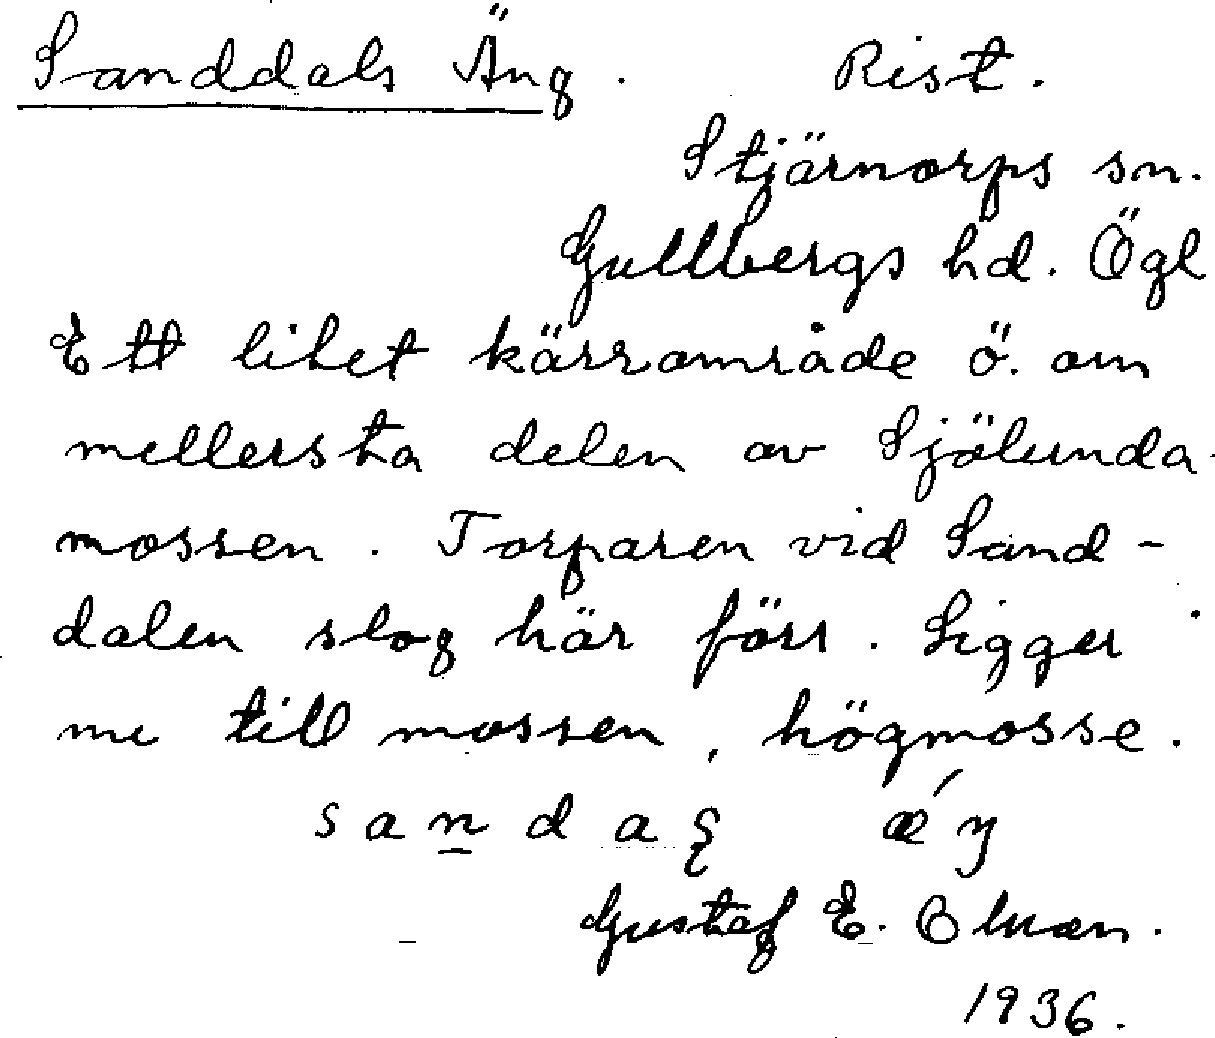 Sanddals Äng. Rist.
Stjärnorps sn.
Gullbergs hd. Ögl
Ett litet kärrområde ö. om
mellersta delen av Sjölunda
mossen. Torparen vid Sand-
dalen slog här förr. Ligger
nu till mossen, högmosse.
Gustaf E.
1936.